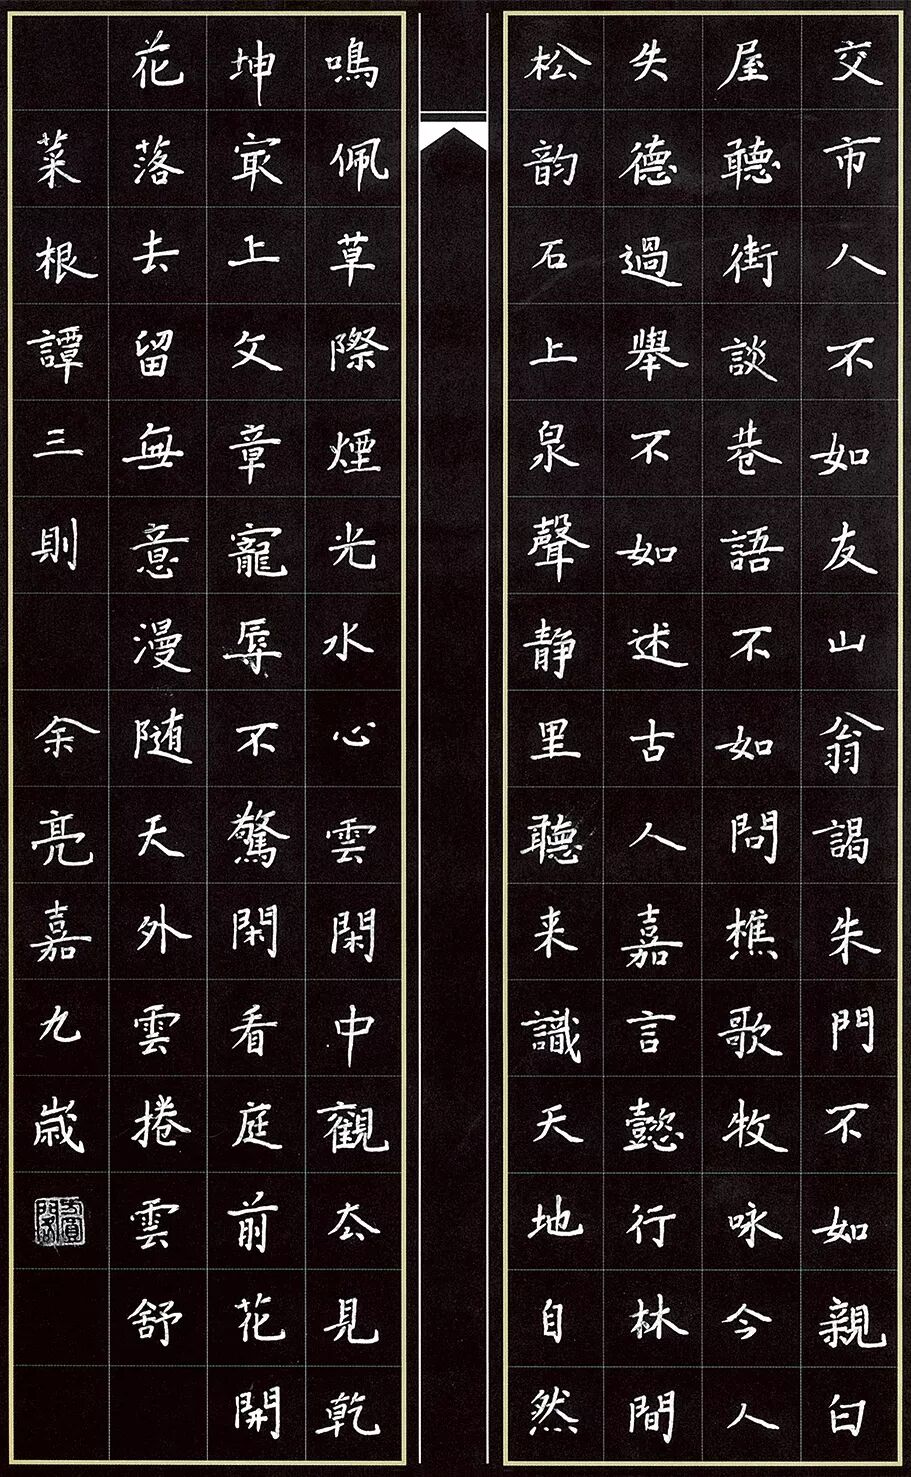 交市人不如友山翁謁朱門不如親白
屋聽街談巷語不如問樵歌牧咏今人
失德過舉不如述古人嘉言懿行林間
松韵石上泉聲静里聽来識天地自然
鳴佩草際煙光水心雲閑中觀太見乾
坤㝡上文章寵辱不驚閑看庭前花開
花落去留無意漫随天外雲捲雲舒
菜根譚三則 余亮嘉九歳